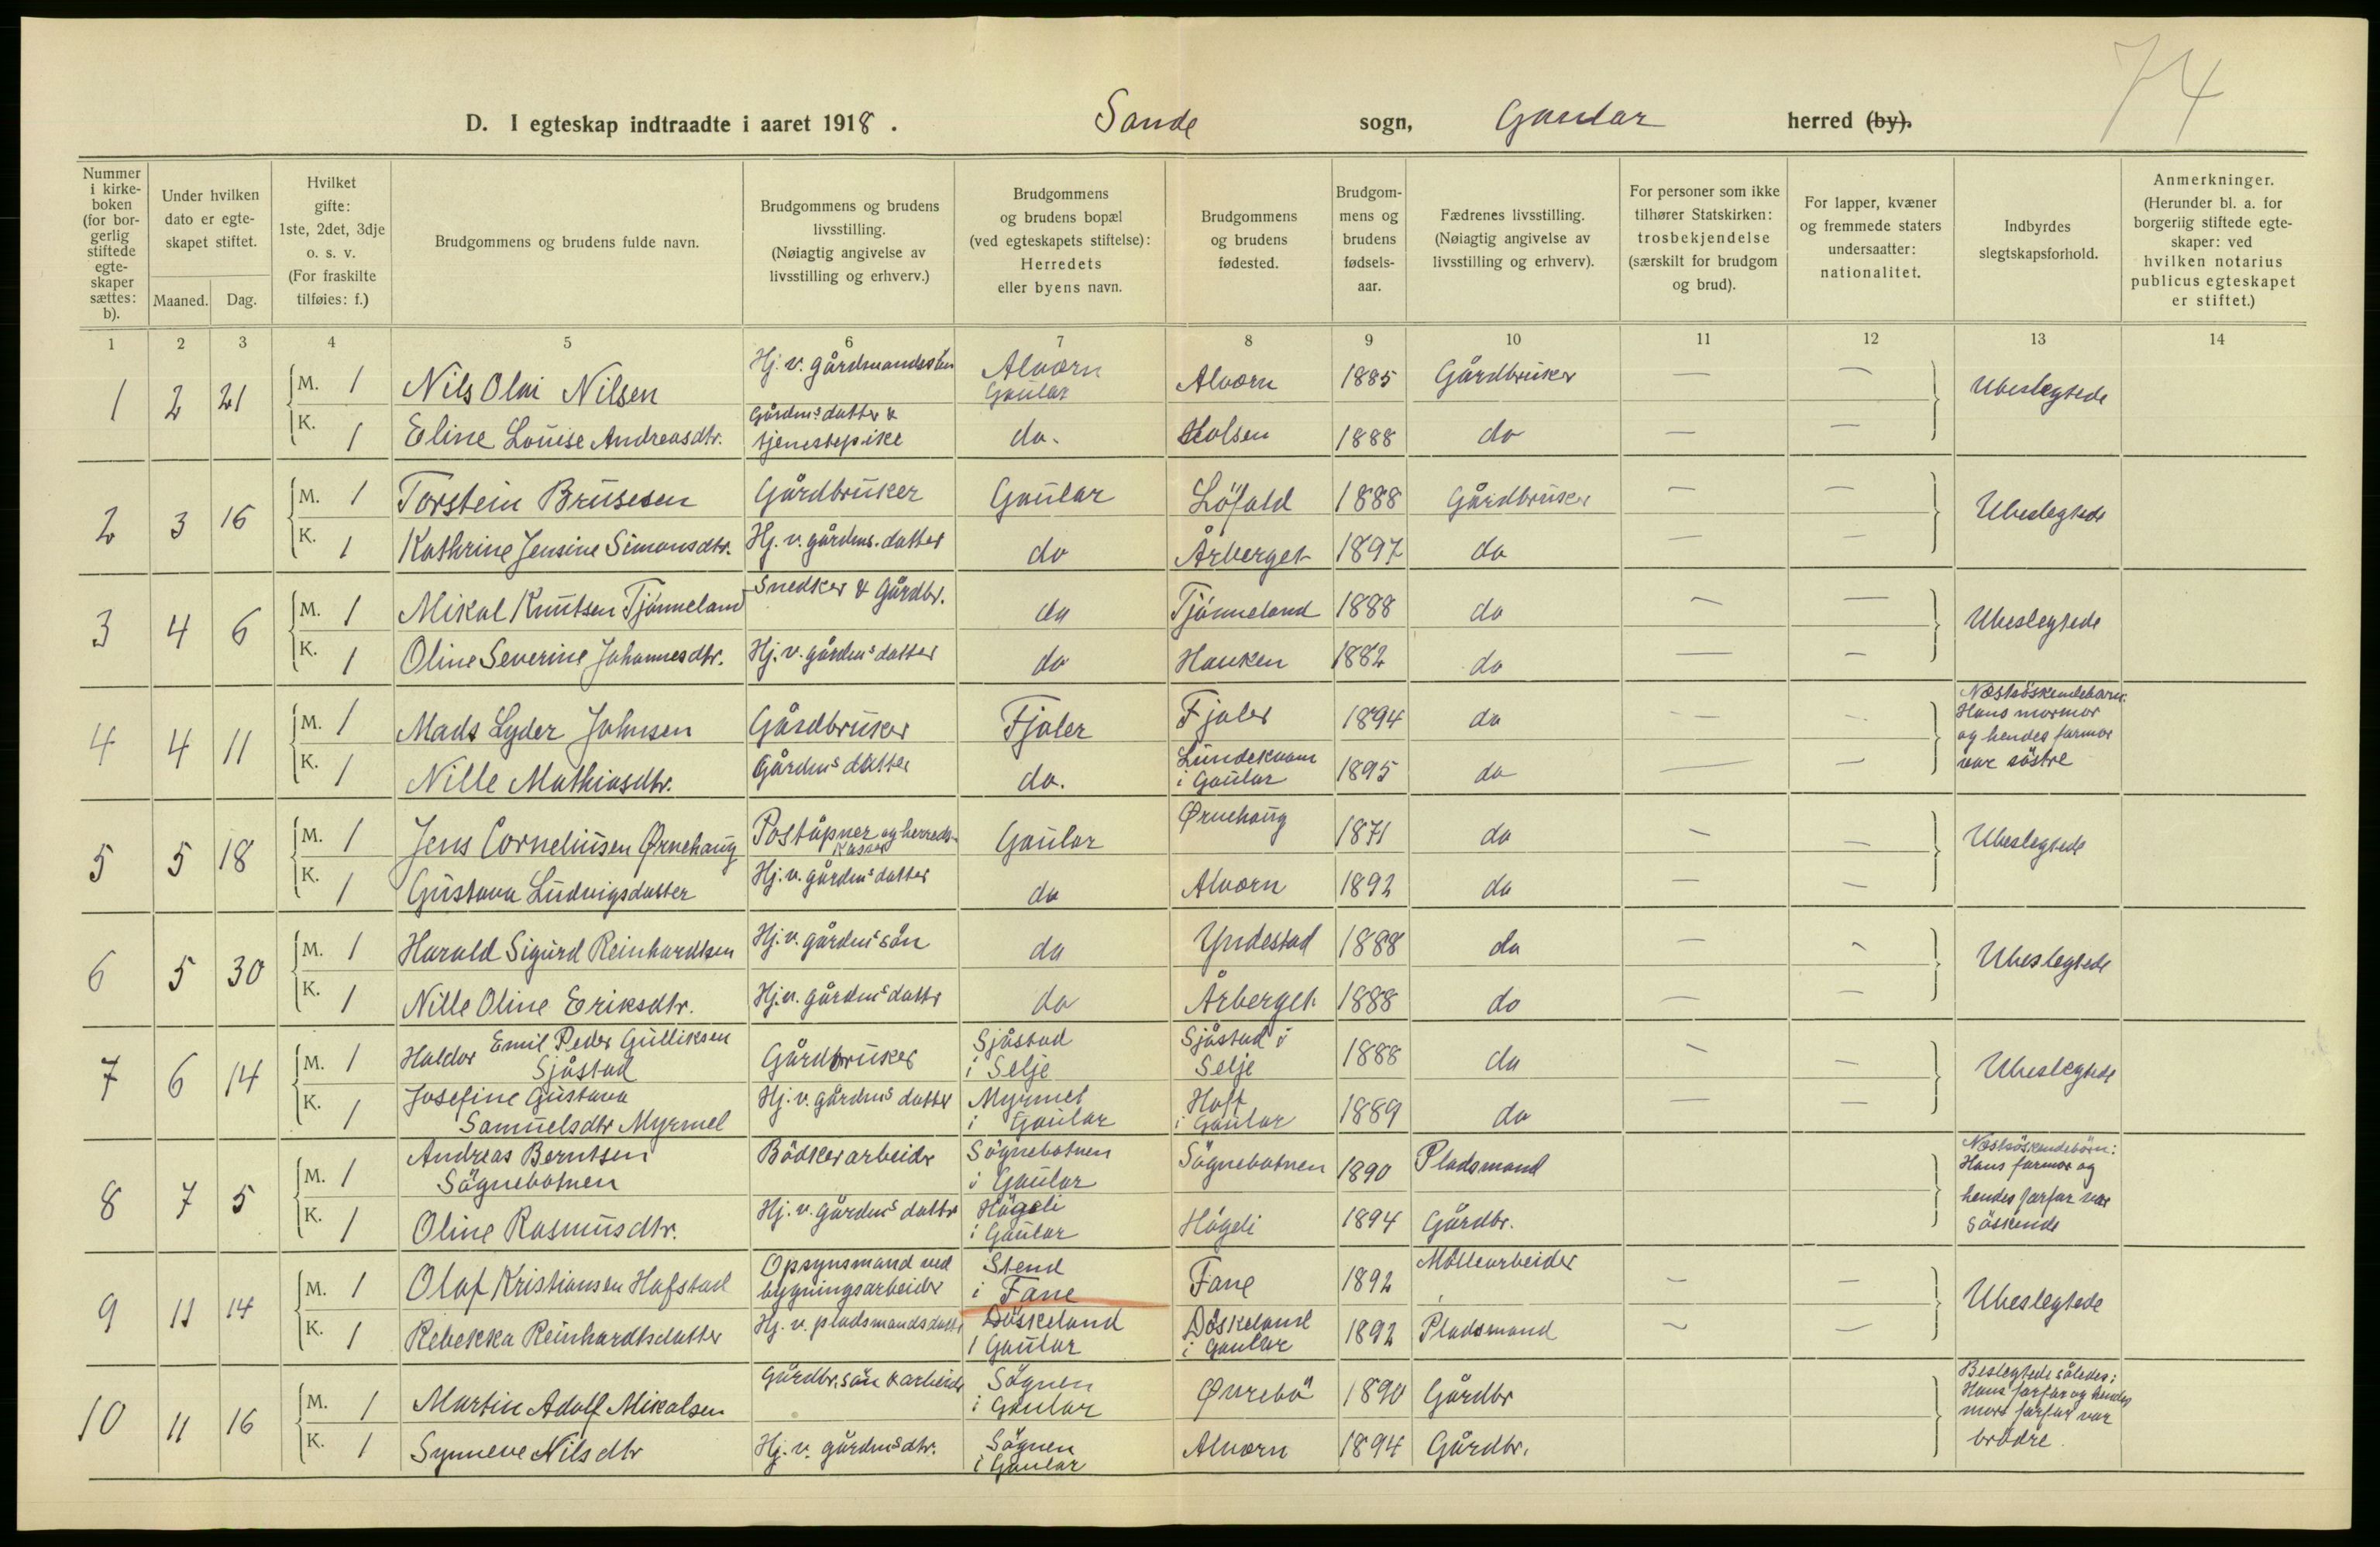 74
D. I egteskap indtraadte i aaret 1918. Sande sogn, Gaular herred (by).
Nummer i kirkeboken (for borgerlig stiftede egteskaper sættes: b).
Under hvilken dato er egteskapet stiftet.
Maaned. Dag.
Hvilket gifte: 1ste, 2det, 3dje o. s. v. (For fraskilte tilføies: f.)
Brudgommens og brudens fulde navn.
Brudgommens og brudens livsstilling. (Nøiagtig angivelse av livsstilling og erhverv.)
Brudgommens og brudens bopæl (ved egteskapets stiftelse): Herredets eller byens navn.
Brudgommens og brudens fødested.
Brudgommens og brudens fødselsaar.
Fædrenes livsstilling. (Nøiagtig angivelse av livsstilling og erhverv).
For personer som ikke tilhører Statskirken: trosbekjendelse (særskilt for brudgom og brud).
For lapper, kvæner og fremmede staters undersaatter: nationalitet.
Indbyrdes slegtskapsforhold.
Anmerkninger. (Herunder bl. a. for borgerlig stiftede egteskaper: ved hvilken notarius publicus egteskapet er stiftet.)
1 2 3 4 5 6 7 8 9 10 11 12 13 14
1 2 21 M. 1 Nils Olai Nilsen Hj. v. gårdmandssön Alværn Gaular Alværn 1885 Gårdbruker — — Ubeslegtede
K. 1 Eline Louise Andreasdtr. Gårdms datter & tjenestepike do. Holsen 1888 do — —
2 3 16 M. 1 Torstein Brusesen Gårdbruker Gaular Löfald 1888 Gårdbruker — — Ubeslegtede
K. 1 Kathrine Jensine Simonsdtr. Hj. v. gårdms. datter do Årberget 1897 do — —
3 4 6 M. 1 Mikal Knutsen Tjönneland Snedker & Gårdbr. do Tjönneland 1888 do — — Ubeslegtede
K. 1 Oline Severine Johannesdtr. Hj. v. gårdms datter do Hauken 1882 do — —
4 4 11 M. 1 Mads Lyder Johnsen Gårdbruker Fjaler Fjaler 1894 do — — Næstsöskendebarn. Hans mormor og hendes farmor var söstre
K. 1 Nille Mathiasdtr. Gårdms datter do. Lundekvam i Gaular 1895 do — —
5 5 18 M. 1 Jens Corneliusen Ørnehaug Poståpner og herredskasser Gaular Ørnehaug 1871 do — — Ubeslegtede
K. 1 Gustava Ludvigsdatter Hj. v. gårdms datter do Alværn 1892 do — —
6 5 30 M. 1 Harald Sigurd Reinhardtsen Hj. v. gårdms sön do Yndestad 1888 do — — Ubeslegtede
K. 1 Nille Oline Eriksdtr. Hj. v. gårdms dattr do Årberget 1888 do — —
7 6 14 M. 1 Haldor Emil Peder Gulliksen Sjåstad Gårdbruker Sjåstad i Selje Sjåstad i Selje 1888 do — — Ubeslegtede
K. 1 Josefine Gustava Samuelsdtr Myrmel Hj. v. gårdms datter Myrmel i Gaular Hoft i Gaular 1889 do — —
8 7 5 M. 1 Andreas Berntsen Sögnebotnen Bödkerarbeider Sögnebotnen i Gaular Sögnebotnen 1890 Pladsmand Næstsöskendebörn: Hans farmor og hendes farfar var söskende
K. 1 Oline Rasmusdtr. Hj. v. gårdms datter Högeli i Gaular Högeli 1894 Gårdbr.
9 11 14 M. 1 Olaf Kristiansen Hafstad Opsynsmand ved bygningsarbeider Stend i Fane Fane 1892 Möllearbeider — — Ubeslegtede
K. 1 Rebekka Reinhardtsdatter Hj. v. pladsmandsdatter Döskeland i Gaular Döskeland i Gaular 1892 Pladsmand — —
10 11 16 M. 1 Martin Adolf Mikalsen Gårdbr. sön & arbeider Sögnen i Gaular Øvrebö 1890 Gårdbr Beslegtede således: Hans farfar og hendes mors farfar var brödre.
K. 1 Synneve Nilsdtr Hj. v. gårdmsdtr. Sögnen i Gaular Alværn 1894 Gårdbr.